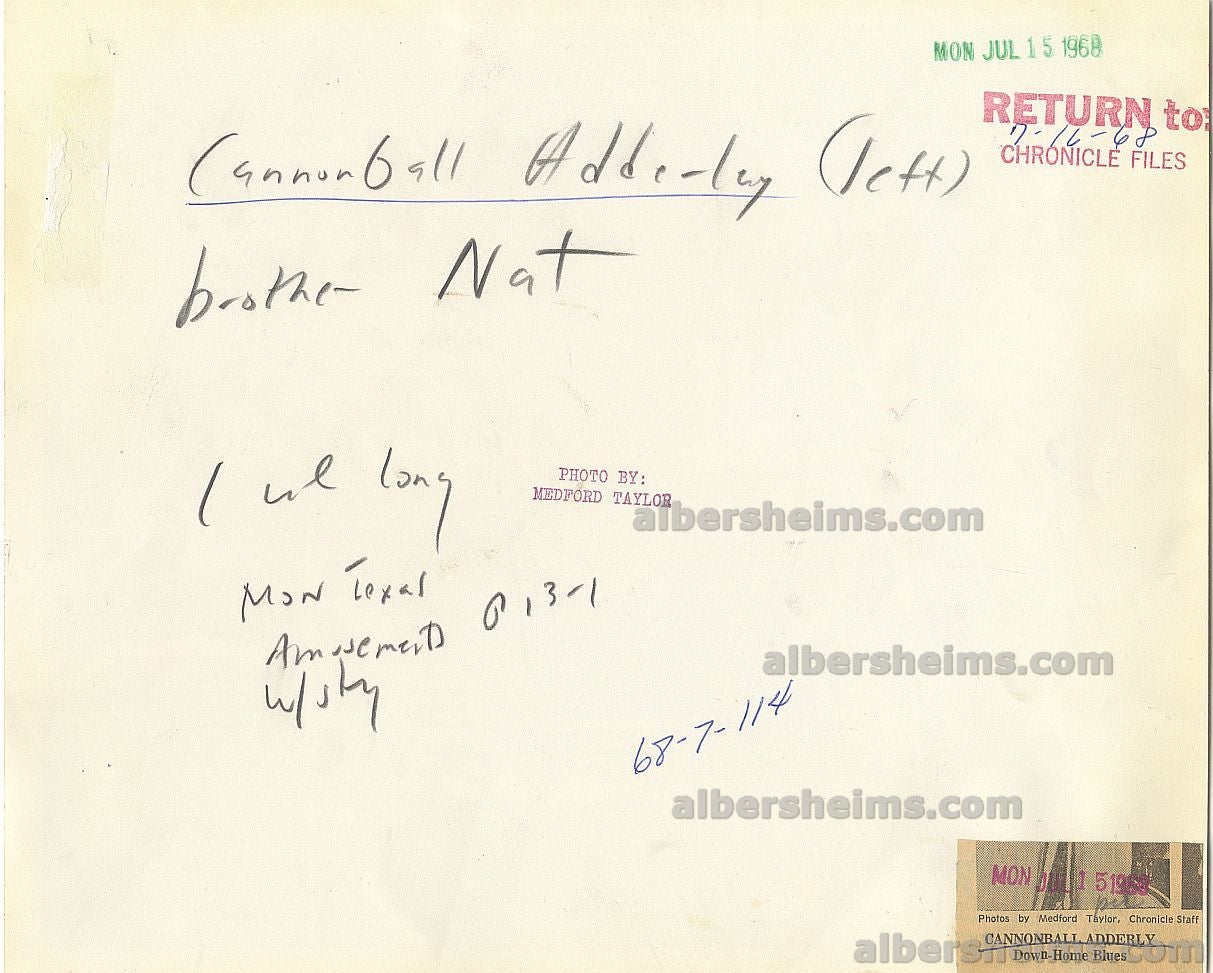 MON JUL 15 1968
RETURN to:
7-16-68
CHRONICLE FILES
Cannonball Adderley (left)
brother Nat
1 col long
PHOTO BY:
MEDFORD TAYLOR
albersheims.com
Mon Texas
Amusements
w/sty
albersheims.com
68-7-114
albersheims.com
MON JUL 15 1968
Photos by Medford Taylor, Chronicle Staff
CANNONBALL ADDERLY
Down-Home Blues
albersheims.com